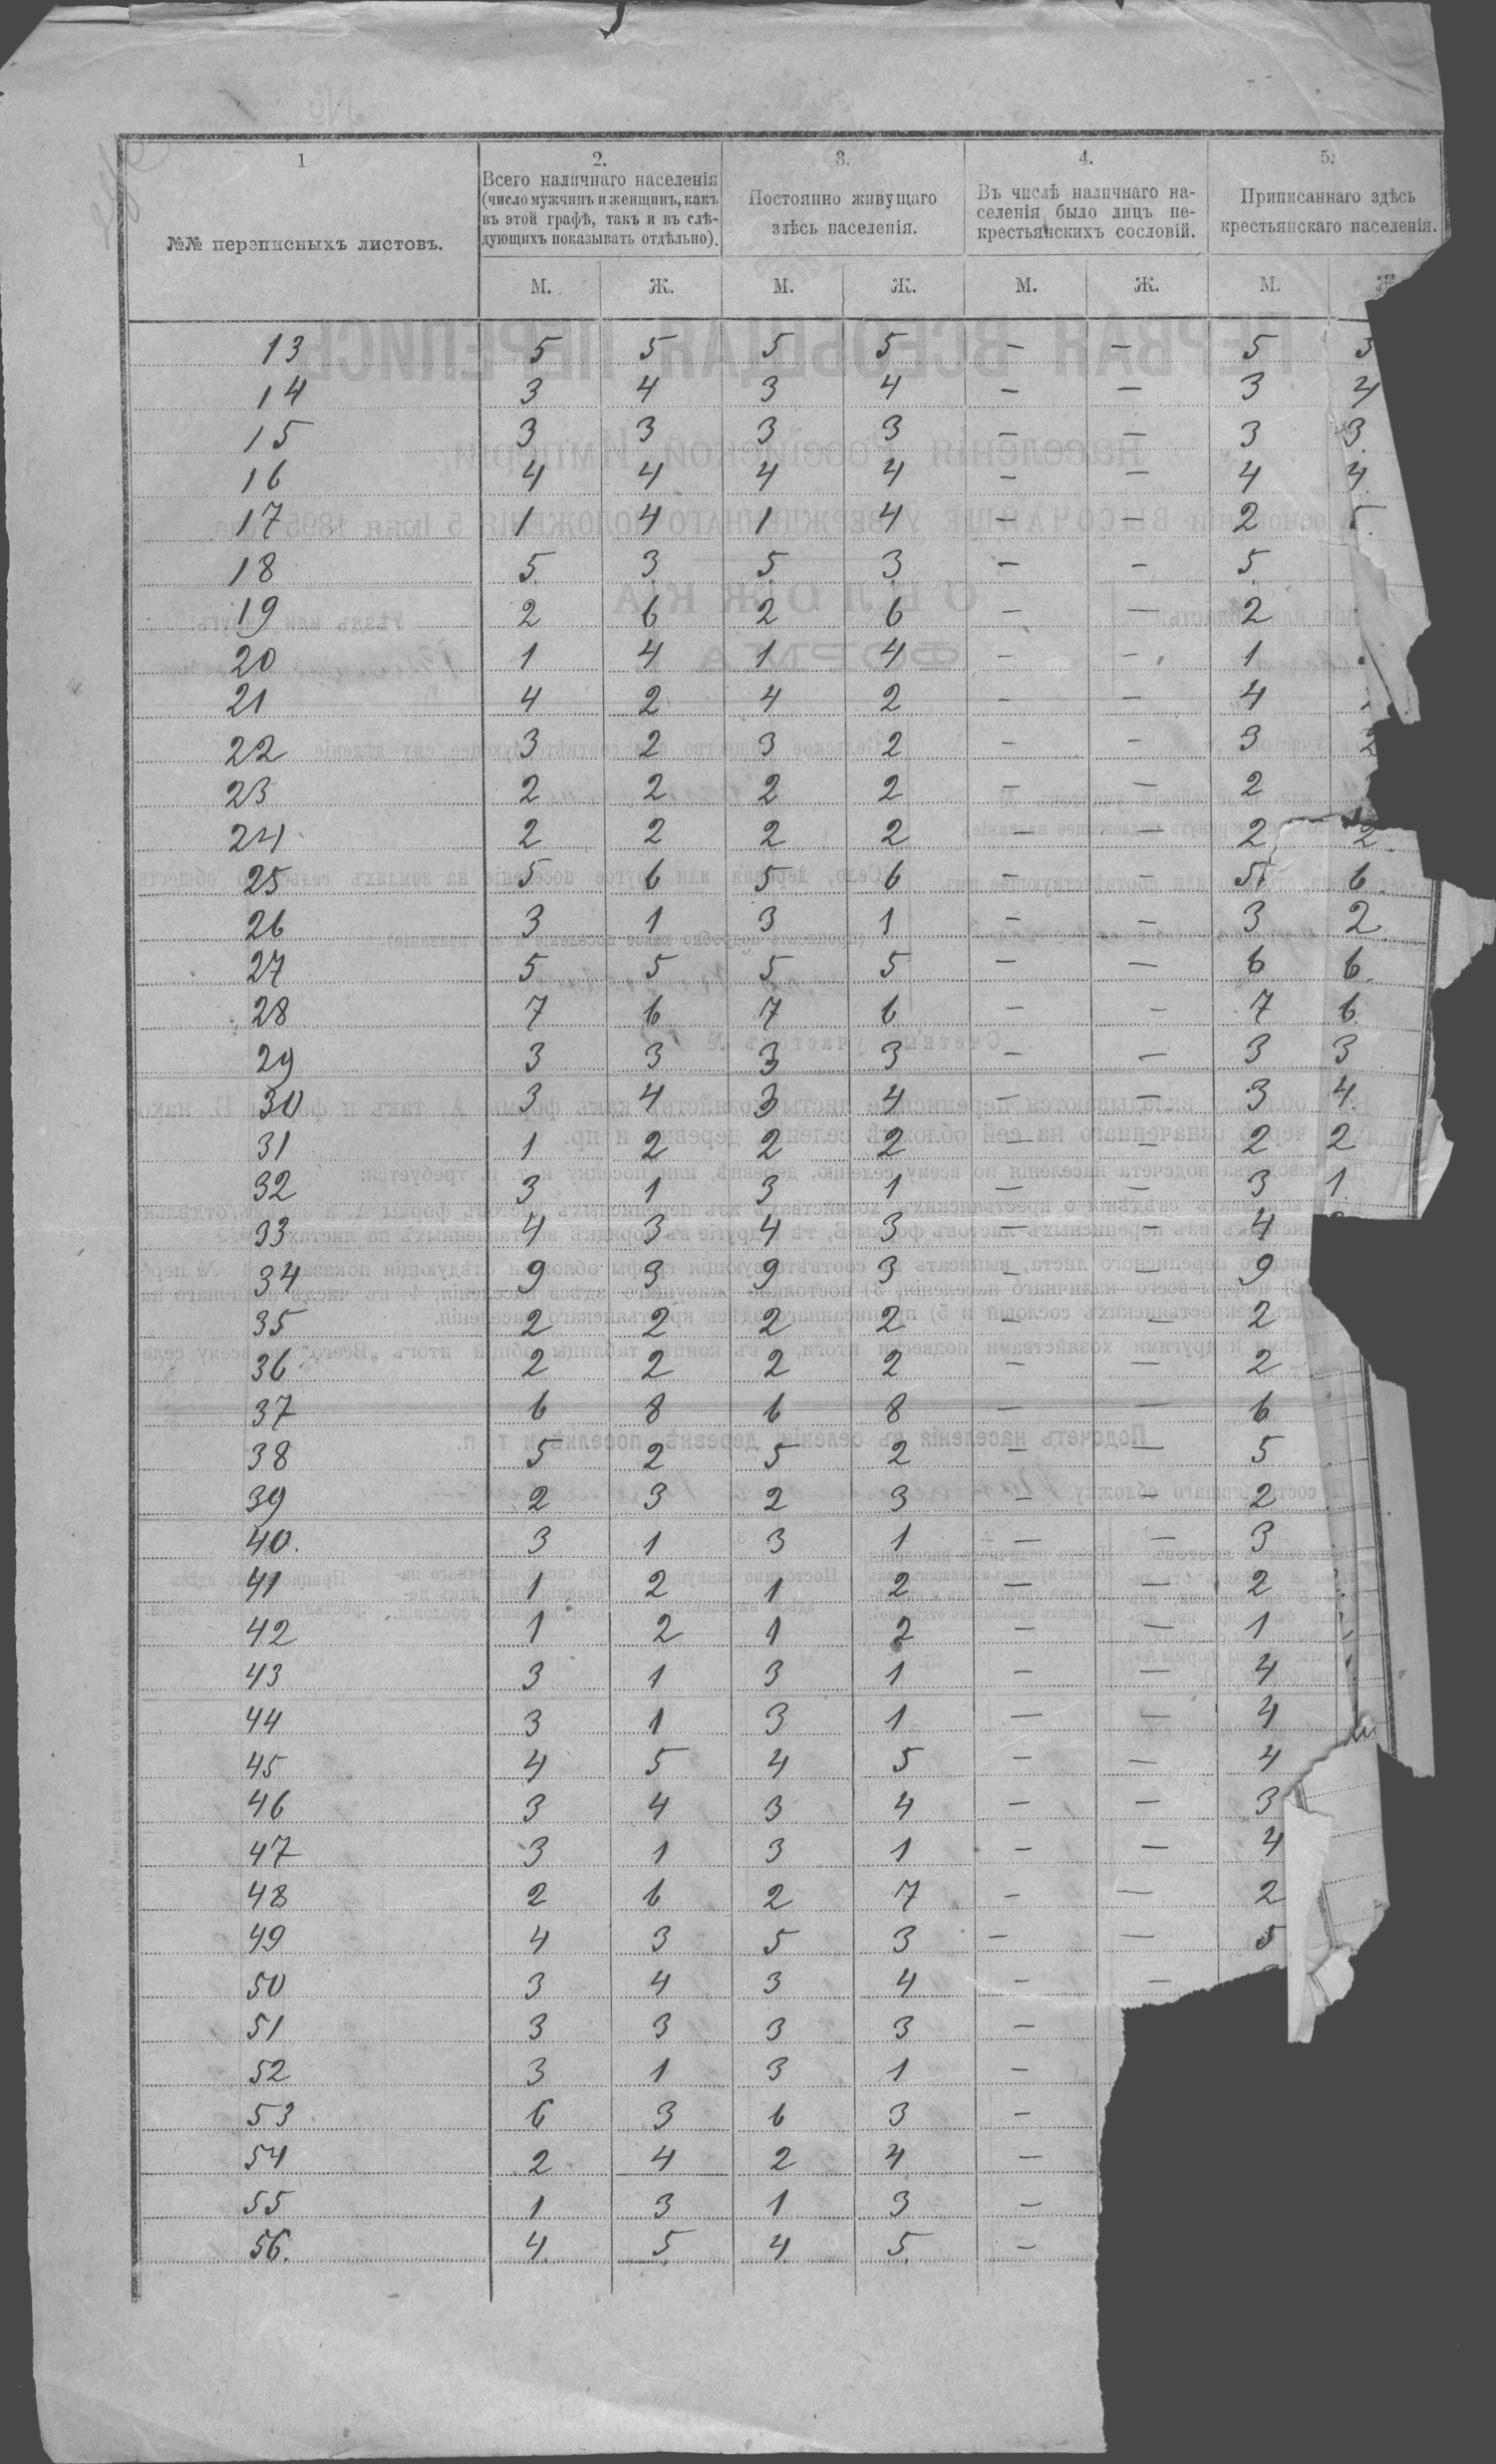 1 2. 3. 4. 5.
№№ переписныхъ листовъ.
Всего наличнаго населенія
(число мужчинъ и женщинъ, какъ
въ этой графѣ, такъ и въ слѣ-
дующихъ показывать отдѣльно).
Постоянно живущаго
здѣсь населенія.
Въ числѣ наличнаго на-
селенія было лицъ не-
крестьянскихъ сословій.
Приписаннаго здѣсь
крестьянскаго населенія.
М. Ж. М. Ж. М. Ж. М. Ж.
13 5 5 5 5 — — 5 3
14 3 4 3 4 — — 3 4
15 3 3 3 3 — — 3 3
16 4 4 4 4 — — 4 4
17 1 4 1 4 — — 2 5
18 5 3 5 3 — — 5
19 2 6 2 6 — — 2
20 1 4 1 4 — — 1
21 4 2 4 2 — — 4
22 3 2 3 2 — — 3 2
23 2 2 2 2 — — 2
24 2 2 2 2 — — 2 2
25 5 6 5 6 — — 5 6
26 3 1 3 1 — — 3 2
27 5 5 5 5 — — 6 6
28 7 6 7 6 — — 7 6
29 3 3 3 3 — — 3 3
30 3 4 3 4 — — 3 4
31 1 2 2 2 — — 2 2
32 3 1 3 1 — — 3 1
33 4 3 4 3 — — 4
34 9 3 9 3 — — 9
35 2 2 2 2 — — 2
36 2 2 2 2 — — 2
37 6 8 6 8 — — 6
38 5 2 5 2 — — 5
39 2 3 2 3 — — 2
40. 3 1 3 1 — — 3
41 1 2 1 2 — — 2
42 1 2 1 2 — — 1
43 3 1 3 1 — — 4
44 3 1 3 1 — — 4
45 4 5 4 5 — — 4
46 3 4 3 4 — — 3
47 3 1 3 1 — — 4
48 2 6 2 7 — — 2
49 4 3 5 3 — — 5
50 3 4 3 4 — —
51 3 3 3 3 —
52 3 1 3 1 —
53 6 3 6 3 —
54 2 4 2 4 —
55 1 3 1 3 —
56. 4 5 4 5 —